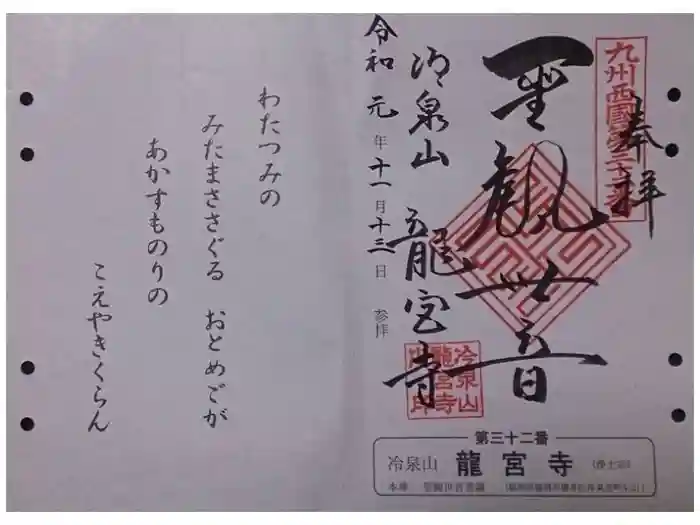 奉拝
九州西國第三十二番
聖観世音
冷泉山 龍宮寺
令和元年十一月十三日 参拝
冷泉山龍宮寺之印
わたつみの
みたまささぐる おとめごが
あかすものりの
こえやきくらん
第三十二番
冷泉山 龍宮寺 (浄土宗)
本尊 聖観世音菩薩